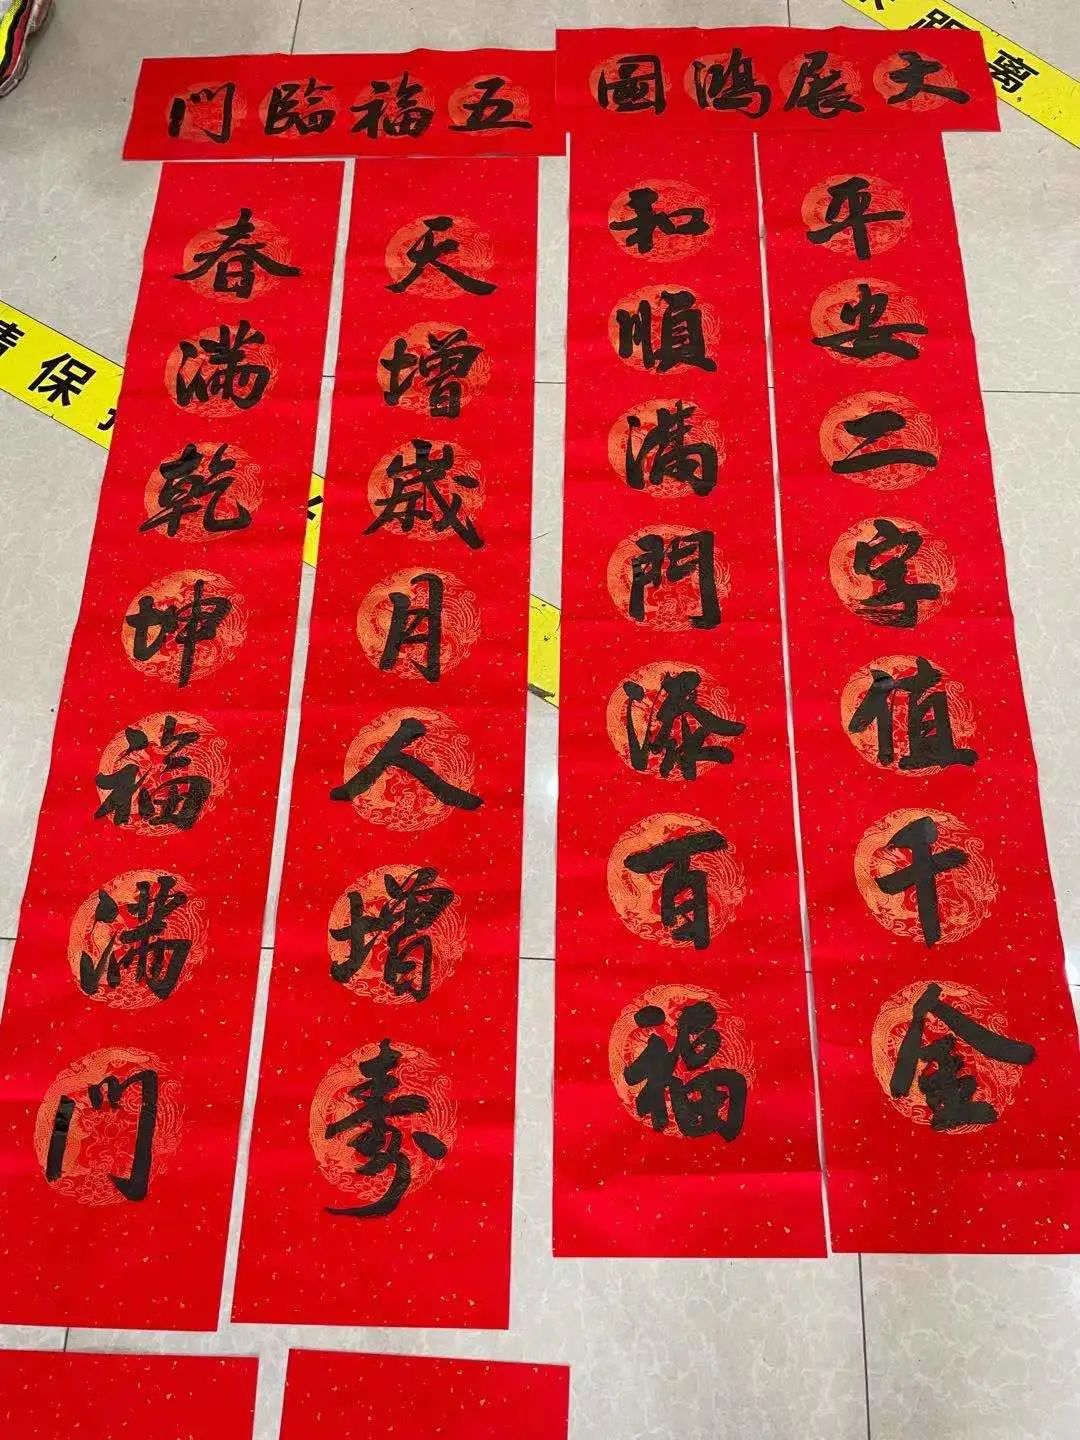 大展鴻圖
平安二字值千金
和順滿門添百福
五福臨門
天增歲月人增壽
春滿乾坤福滿門
距离
请保